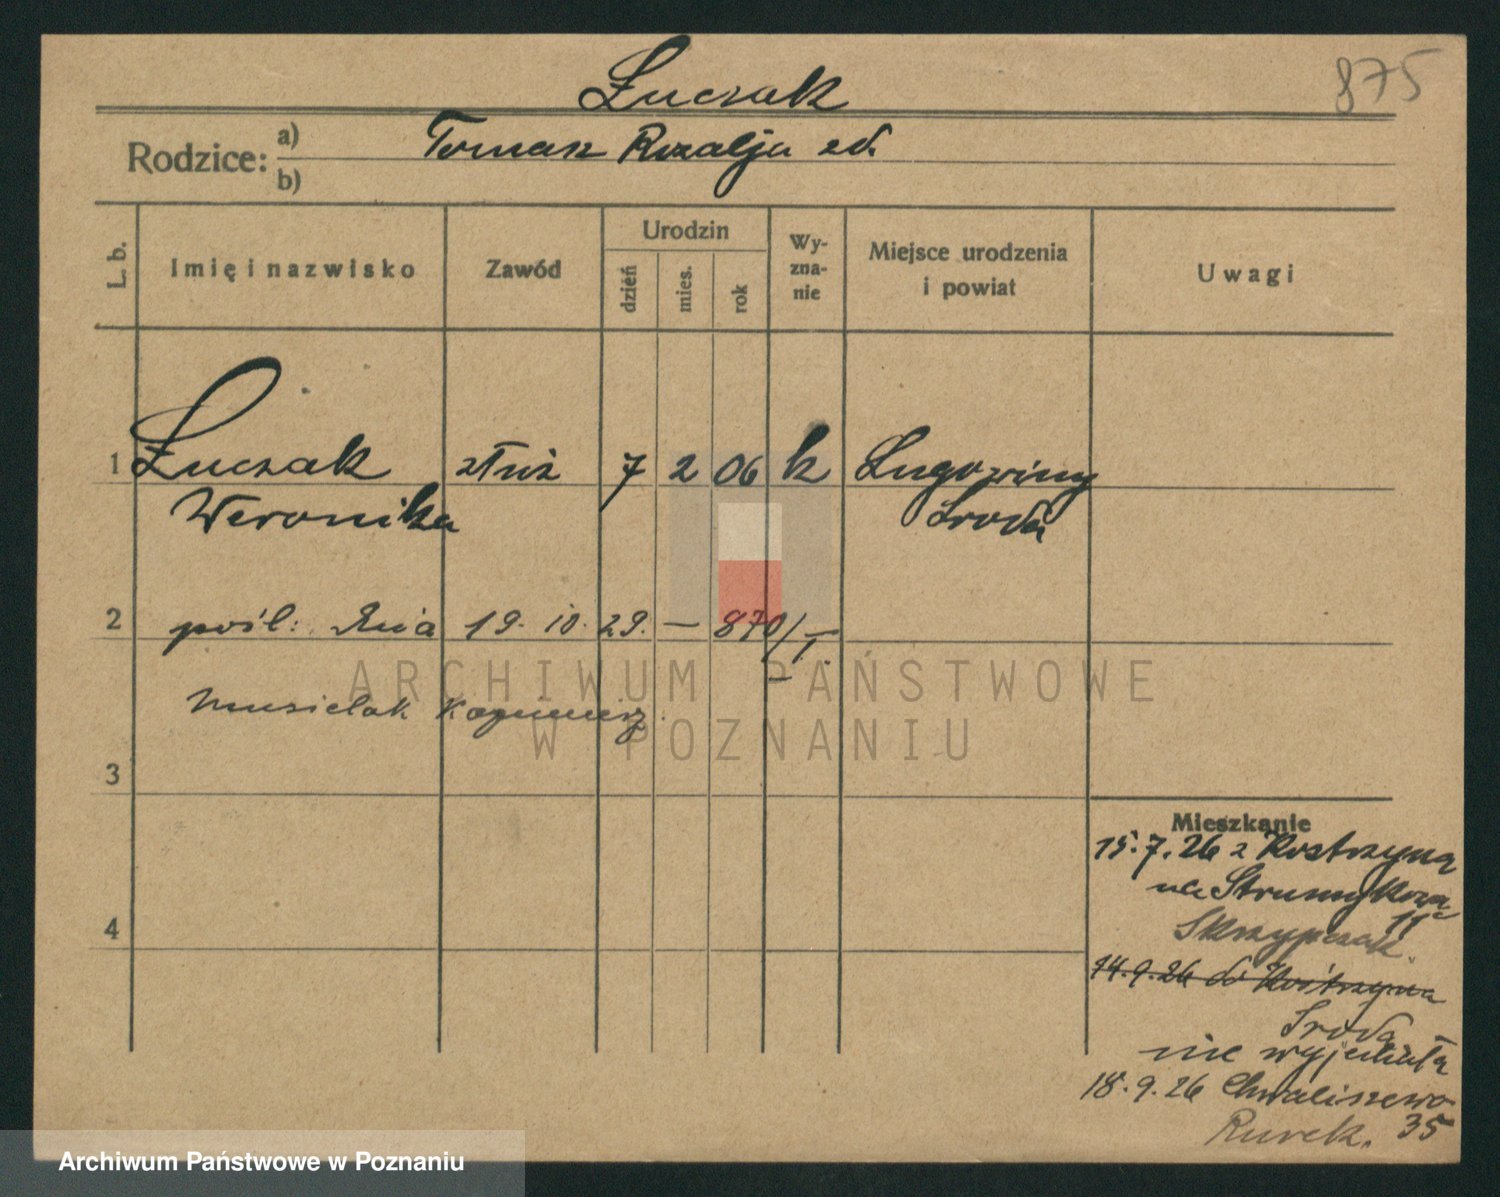 875
Łuczak
Rodzice: a) b) Tomasz Rozalja zd.
L. b. Imię i nazwisko Zawód Urodzin dzień mies. rok Wyzna-nie Miejsce urodzenia i powiat Uwagi
1 Łuczak służ 7 2 06 k Ługowiny
Weronika Środa
2 pośl: dnia 19. 10. 29. — 870/I.
Musielak Kazimierz.
3
4
Mieszkanie
15.7.26 z Kostrzyna
na Strumykowa
11a
Skrzypczak.
14.9.26 do Kostrzyna
Środa
nie wyjechała
18.9.26 Chwaliszewo
Rurek. 35
ARCHIWUM PAŃSTWOWE
W POZNANIU
Archiwum Państwowe w Poznaniu